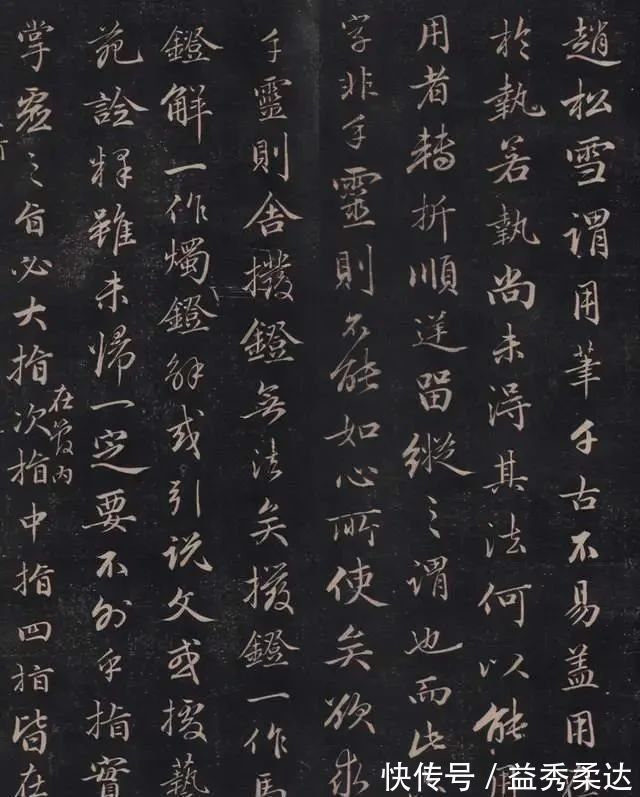 趙松雪謂用筆千古不易蓋用
於執若執尚未得其法何以能用
用者轉折順逆留縱之謂也而此
字非手靈則不能如心所使矣欲求
手靈則舍撥鐙無法矣撥鐙一作馬
鐙解一作燭鐙解或引說文或援藝
苑詮釋雖未歸一定要不外乎指實
掌虛之旨必大指次指在管内中指四指皆在
快传号/益秀柔达